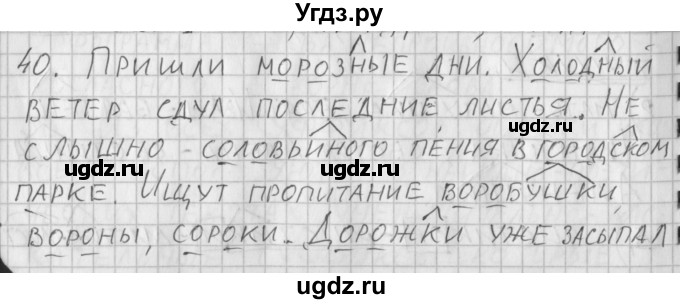 Угдз.ру
40. Пришли морозные дни. Холодный
ветер сдул последние листья. Не
слышно соловьиного пения в городском
парке. Ищут пропитание воробушки,
вороны, сороки. Дорожки уже засыпал
©угдз.ru ©угдз.ru
©угдз.ru ©угдз.ru
©угдз.ru ©угдз.ru